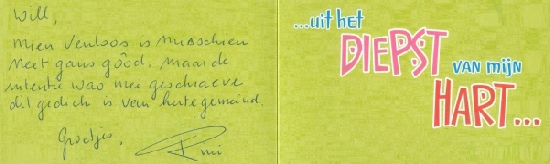 Will,
mien Venloos is misschien
neet gans gôôd, maar de
intentie
dit gedich is van harte gemeind.
Groetjes,
...uit het
DIEPST
van mijn
HART...